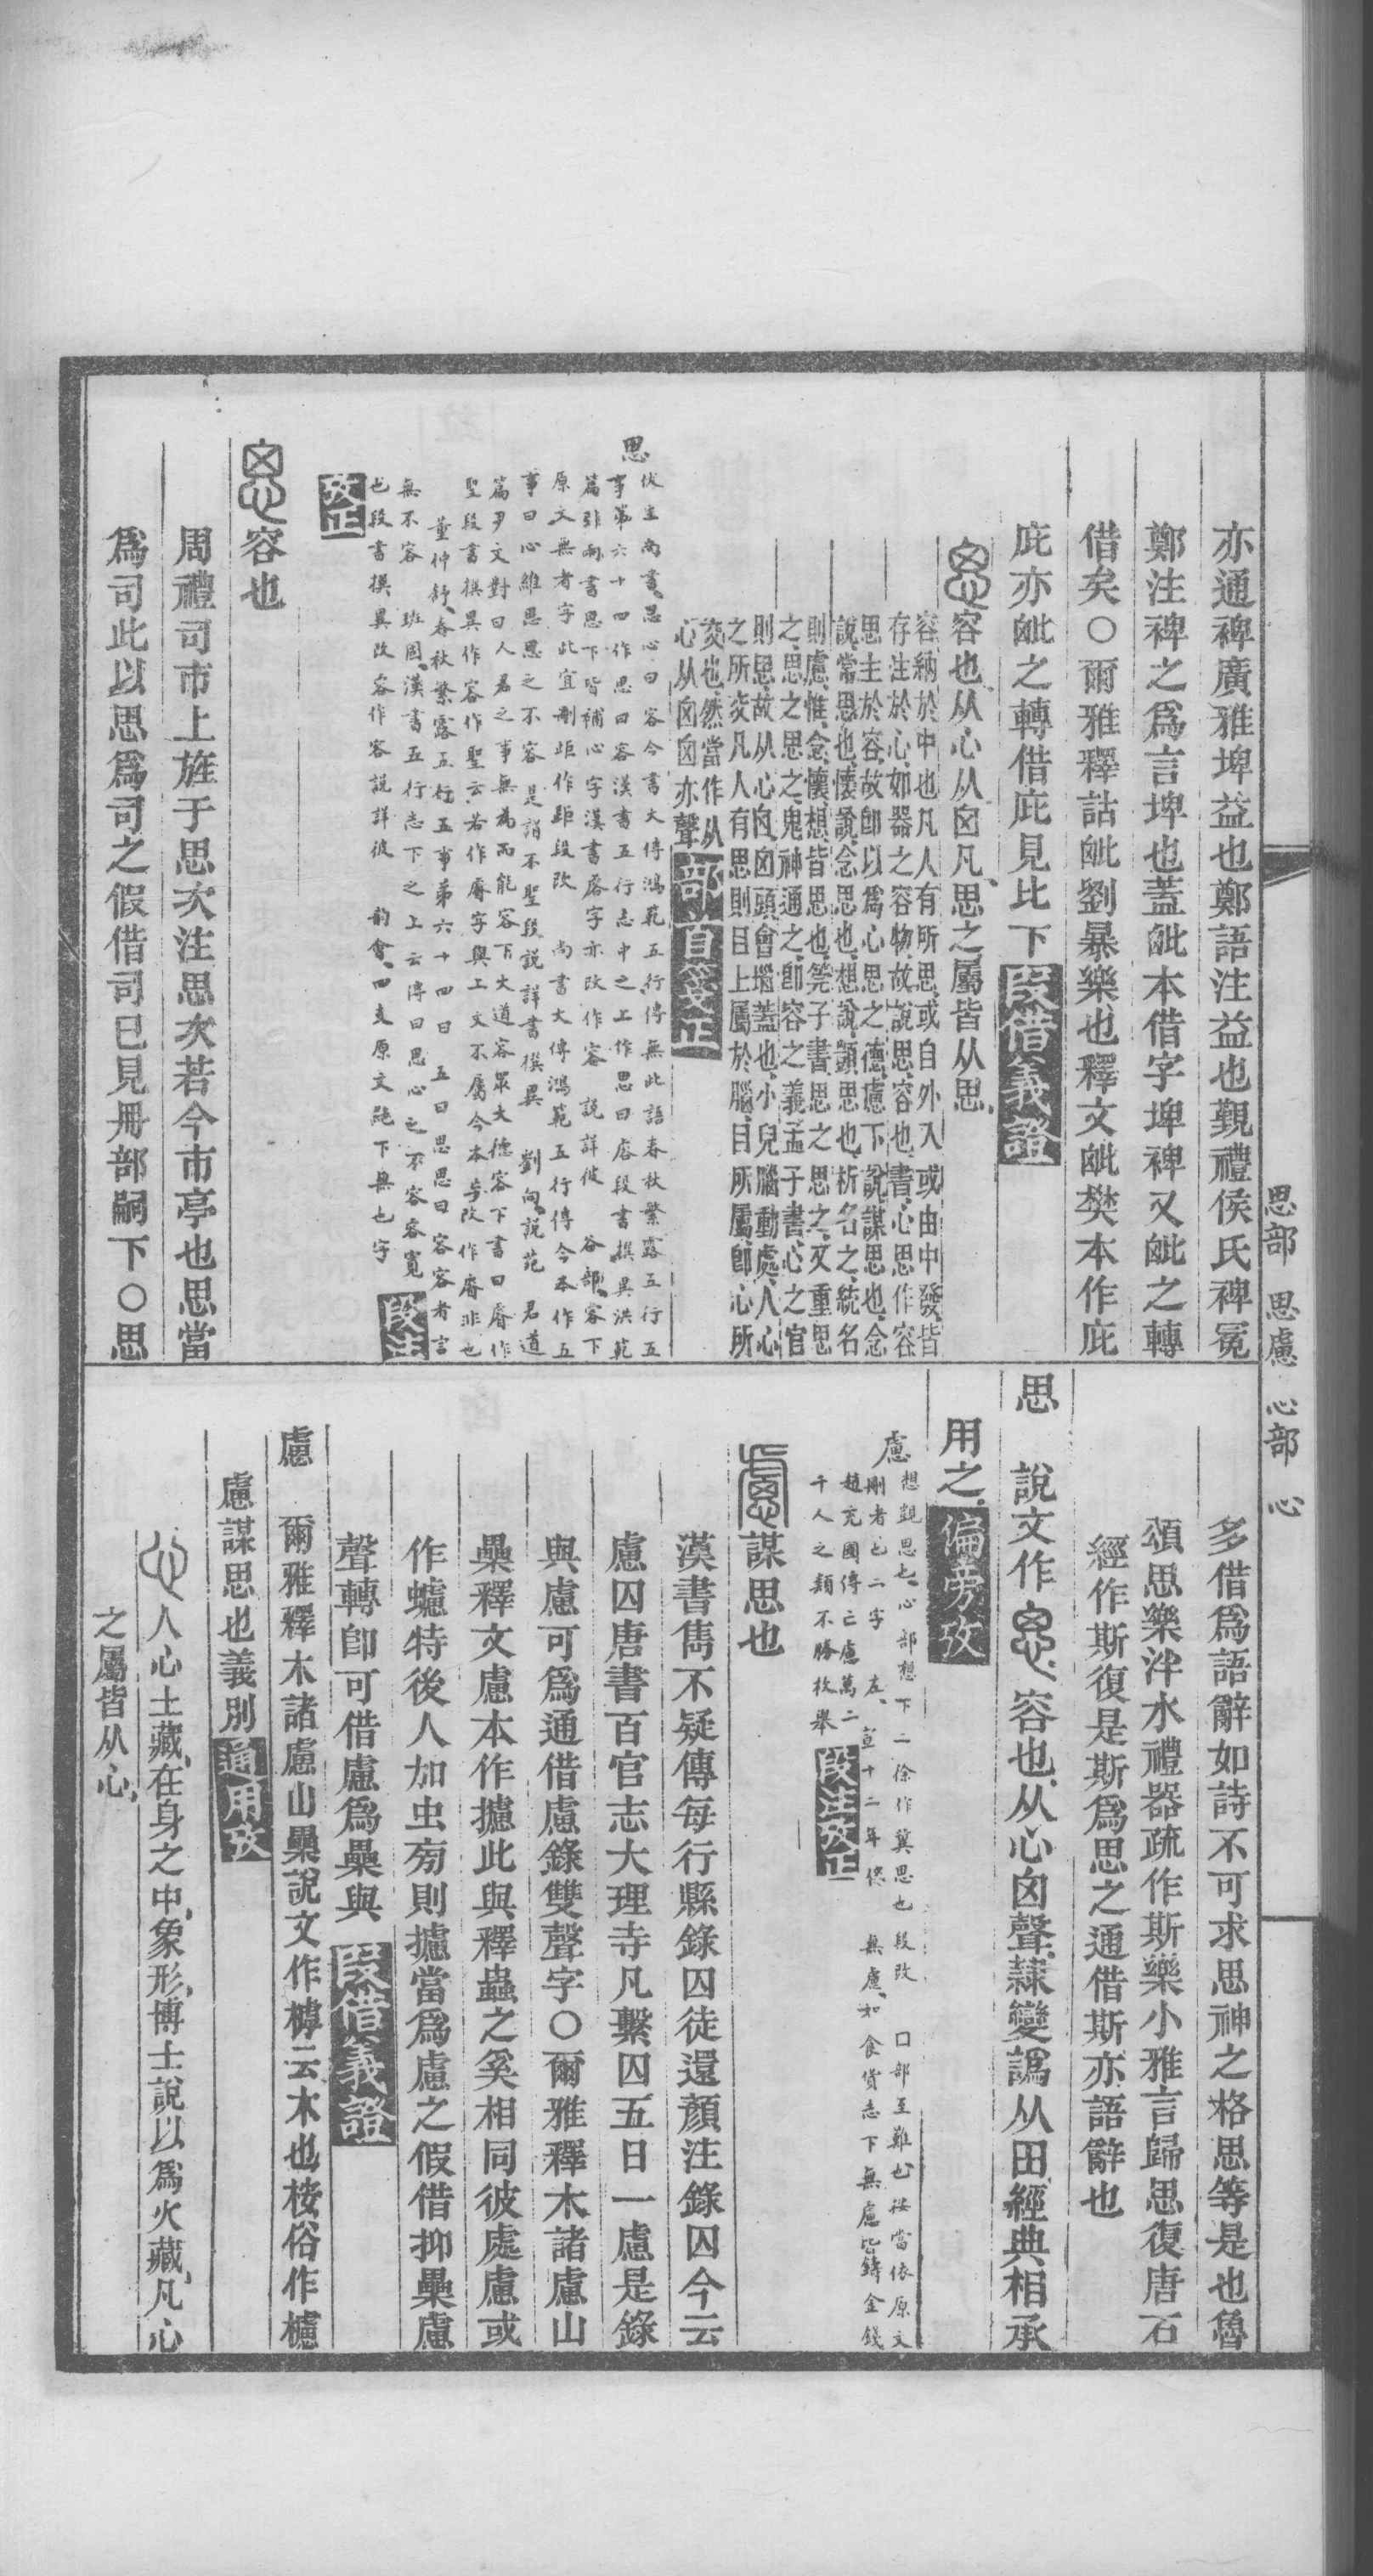 亦通裨廣雅埤益也鄭語注益也覲禮侯氏裨冕
鄭注裨之爲言埤也蓋𣬈本借字埤裨又𣬈之轉
借矣○爾雅釋詁𣬈劉暴樂也釋文𣬈樊本作庇
庇亦𣬈之轉借庇見比下叚借義證
容也从心从囟凡思之屬皆从思
容納於中也凡人有所思或自外入或由中發皆
存注於心如器之容物故說思容也書心思作容
思主於容故卽以爲心思之德慮下說謀思也念
說常思也懐說念思也想說顗思也析名之統名
則慮惟念懷想皆思也筦子書思之思之又重思
之思之思之鬼神通之卽容之義孟子書心之官
則思故从心囟囟頭會堖蓋也小兒腦動處人心
之所交凡人有思則目上屬於腦目所屬卽心所
交也然當作从
心从囟囟亦聲部首箋正
思
伏生尚書思心曰容今書大傳鴻範五行傳無此語春秋繁露五行五
事第六十四作思曰容漢書五行志中之上作思曰睿段書撰異洪範
篇引兩書思下皆補心字漢書睿字亦改作容 說詳彼 谷部容下
原文無者字此宜刪歫作距段改 尚書大傳鴻範五行傳今本作五
事曰心維思思之不容是謂不聖段說詳書撰異 劉向說苑 君道
篇尹文對曰人君之事無爲而能容下大道容眾大德容下書曰睿作
聖段書撰異作容作聖云若作睿字與上文不屬今本妄改作睿非也
董仲舒春秋繁露五行五事第六十四曰 五曰思思曰容容者言
無不容 班固漢書五行志下之上云傳曰思心之不容容寬
也段書撰異改容作容說詳彼 韵會四支原文㲋下無也字 段注
攷正
容也
周禮司市上旌于思次注思次若今市亭也思當
爲司此以思爲司之假借司已見冊部嗣下○思
思部 思慮 心部 心
多借爲語辭如詩不可求思神之格思等是也魯
頌思樂泮水禮器疏作斯樂小雅言歸思復唐石
經作斯復是斯爲思之通借斯亦語辭也
思 說文作容也从心囟聲隸變譌从田經典相承
用之偏旁攷
慮
想覬思也心部想下二徐作冀思也段改 囗部至難也按當依原文
剛者也二字 左宣十二年傳 無慮如食貨志下無慮皆鑄金錢
趙充國傳亡慮萬二
千人之類不勝枚舉 段注攷正
謀思也
漢書雋不疑傳每行縣錄囚徒還顏注錄囚今云
慮囚唐書百官志大理寺凡繫囚五日一慮是錄
與慮可爲通借慮錄雙聲字○爾雅釋木諸慮山
櫐釋文慮本作攄此與釋蟲之奚相同彼處慮或
作蠦特後人加虫旁則攄當爲慮之假借抑櫐慮
聲轉卽可借慮爲櫐與 叚借義證
慮 爾雅釋木諸慮山櫐說文作樗云木也桉俗作櫖
慮謀思也義別通用攷
人心土藏在身之中象形博士說以爲火藏凡心
之屬皆从心